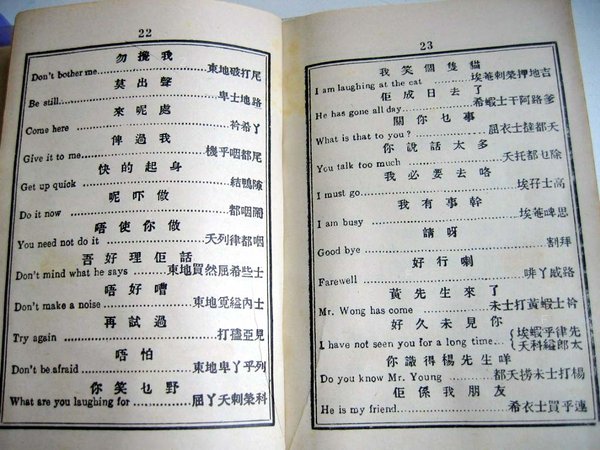 22
勿攪我
Don't bother me 東地破打尾
莫出聲
Be still 卑士地路
來呢處
Come here 衿希丫
俾過我
Give it to me 機乎咽都尾
快的起身
Get up quick 結鴨
呢吓做
Do it now 都咽
唔使你做
You need not do it 天列律都咽
吾好理佢話
Don't mind what he says 東地買然屈希些士
唔好嘈
Don't make a noise 東地覓 內士
再試過
Try again 打 亞見
唔怕
Don't be afraid 東地卑丫乎列
你笑乜野
What are you laughing for 屈丫天刺榮科
23
我笑個隻貓
I am laughing at the cat 埃菴刺榮押地吉
佢成日去了
He has gone all day 希蝦士干阿路爹
關你乜事
What is that to you? 屈衣士撻都天
你說話太多
You talk too much 天托都乜除
我必要去咯
I must go 埃孖士高
我有事幹
I am busy 埃菴啤思
請呀
Good bye 割拜
好行喇
Farewell 啡丫威路
黃先生來了
Mr. Wong has come 未士打黃蝦士衿
好久未見你
I have not seen you for a long time 埃蝦乎律先
天科 郎太
你識得楊先生咩
Do you know Mr. Young 都天撈未士打楊
佢係我朋友
He is my friend 希衣士買乎連